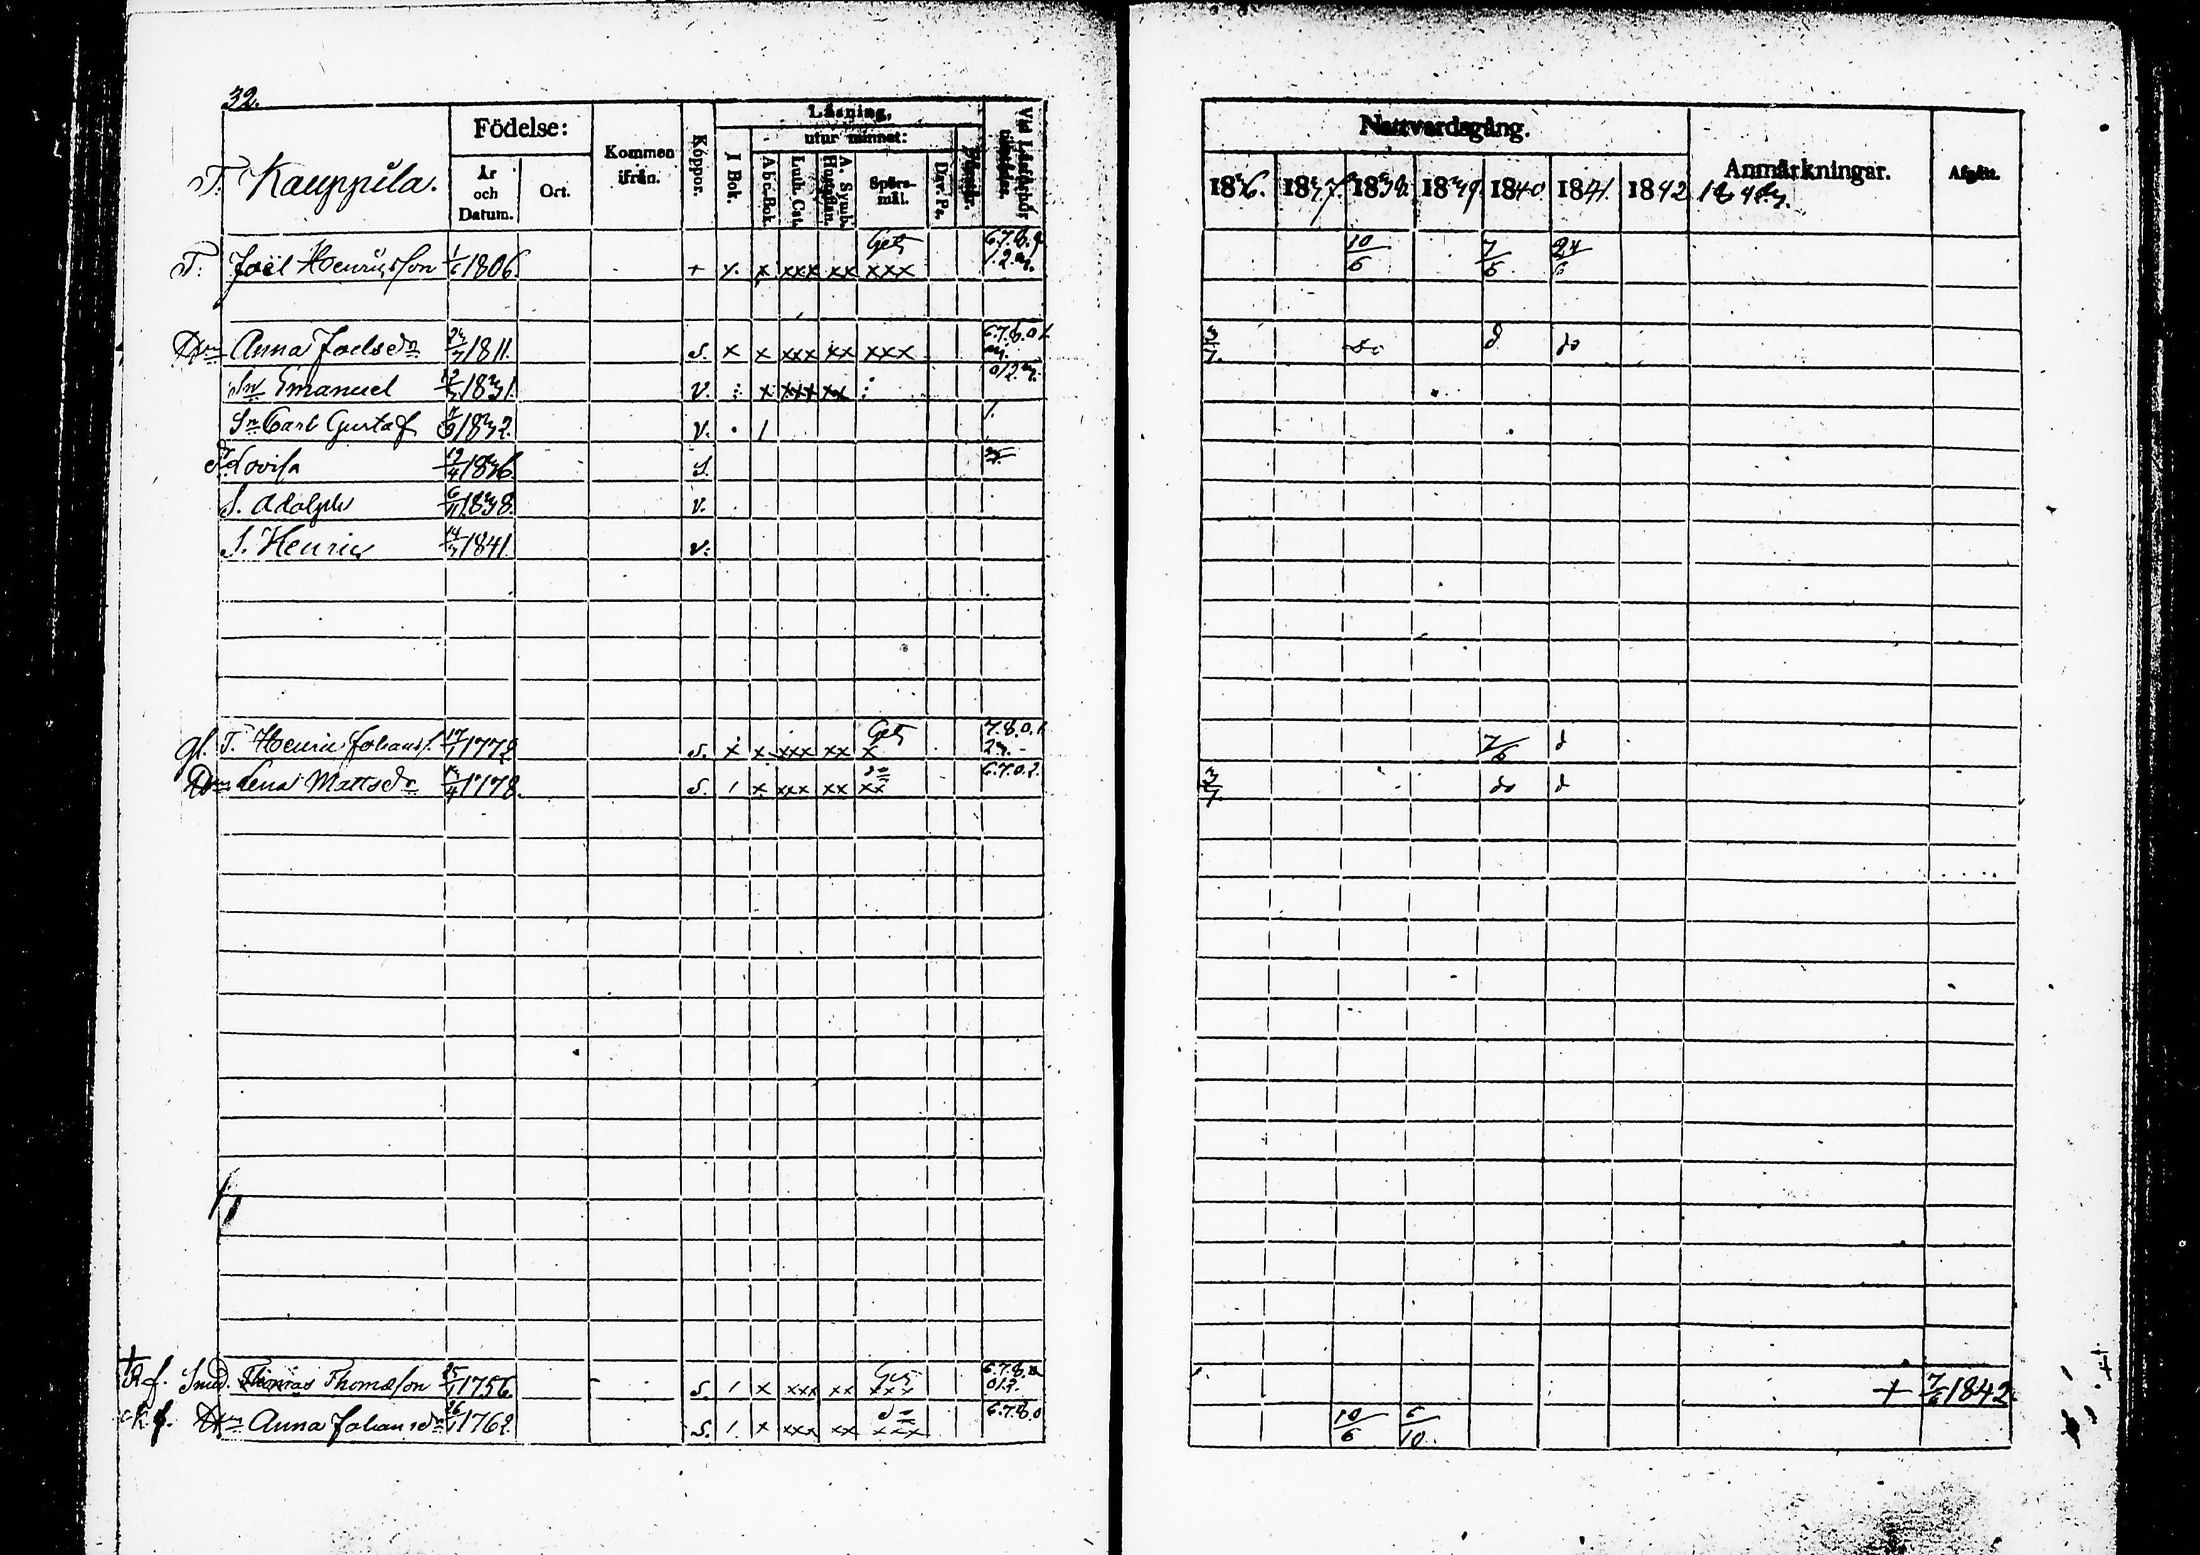 32.
T. Kauppila.
Födelse:
År och Datum.
Ort.
Kommen ifrån.
Koppor.
Läsning,
I Bok.
utur minnet:
A b c-Bok.
Luth. Cat.
A. Symb. Hustaflan.
Spörsmål.
Dav. Ps.
Vid Läsförhör
T. Joël Henricsson 1/6 1806. + x x xxx xx xxx Get 6.7.8.9 1.2.
Drn Anna Joelsdr 24/7 1811. S. x x xxx xx xxx 6.7.8.0.1.
Sn Emanuel 12/3 1831. V. : x xxx xx : 0/2.
Sn Carl Gustaf 1832. V. . / 1.
D. Lovisa 19/4 1836. S.
S. Adolph 6/11 1838. V.
S. Henric 14/3 1841. V.
gl. T. Henric Johanss. 17/1 1772 S. x x xxx xx x 7.8.0.1. 2
Drn Lena Mattsdr 1778. S. / x xxx xx xx 6.7.0.2.
Rf. Smed. Thomas Thomasson 25/1 1756 S. / x xxx xx xxx 6.7.8. 012.
Rf. Drn Anna Johansdr 26/1 1762. S. 1. x xxx xx xxx 6.7.8.0
Nattvardsgång.
Anmärkningar.
Afgått.
1836. 1837. 1838. 1839. 1840. 1841. 1842. 1843.
10/6 7/6 24/6
3/7. do d do
7/6 d
3/7. do d
+ 7/6 1842.
10/6 6/10.